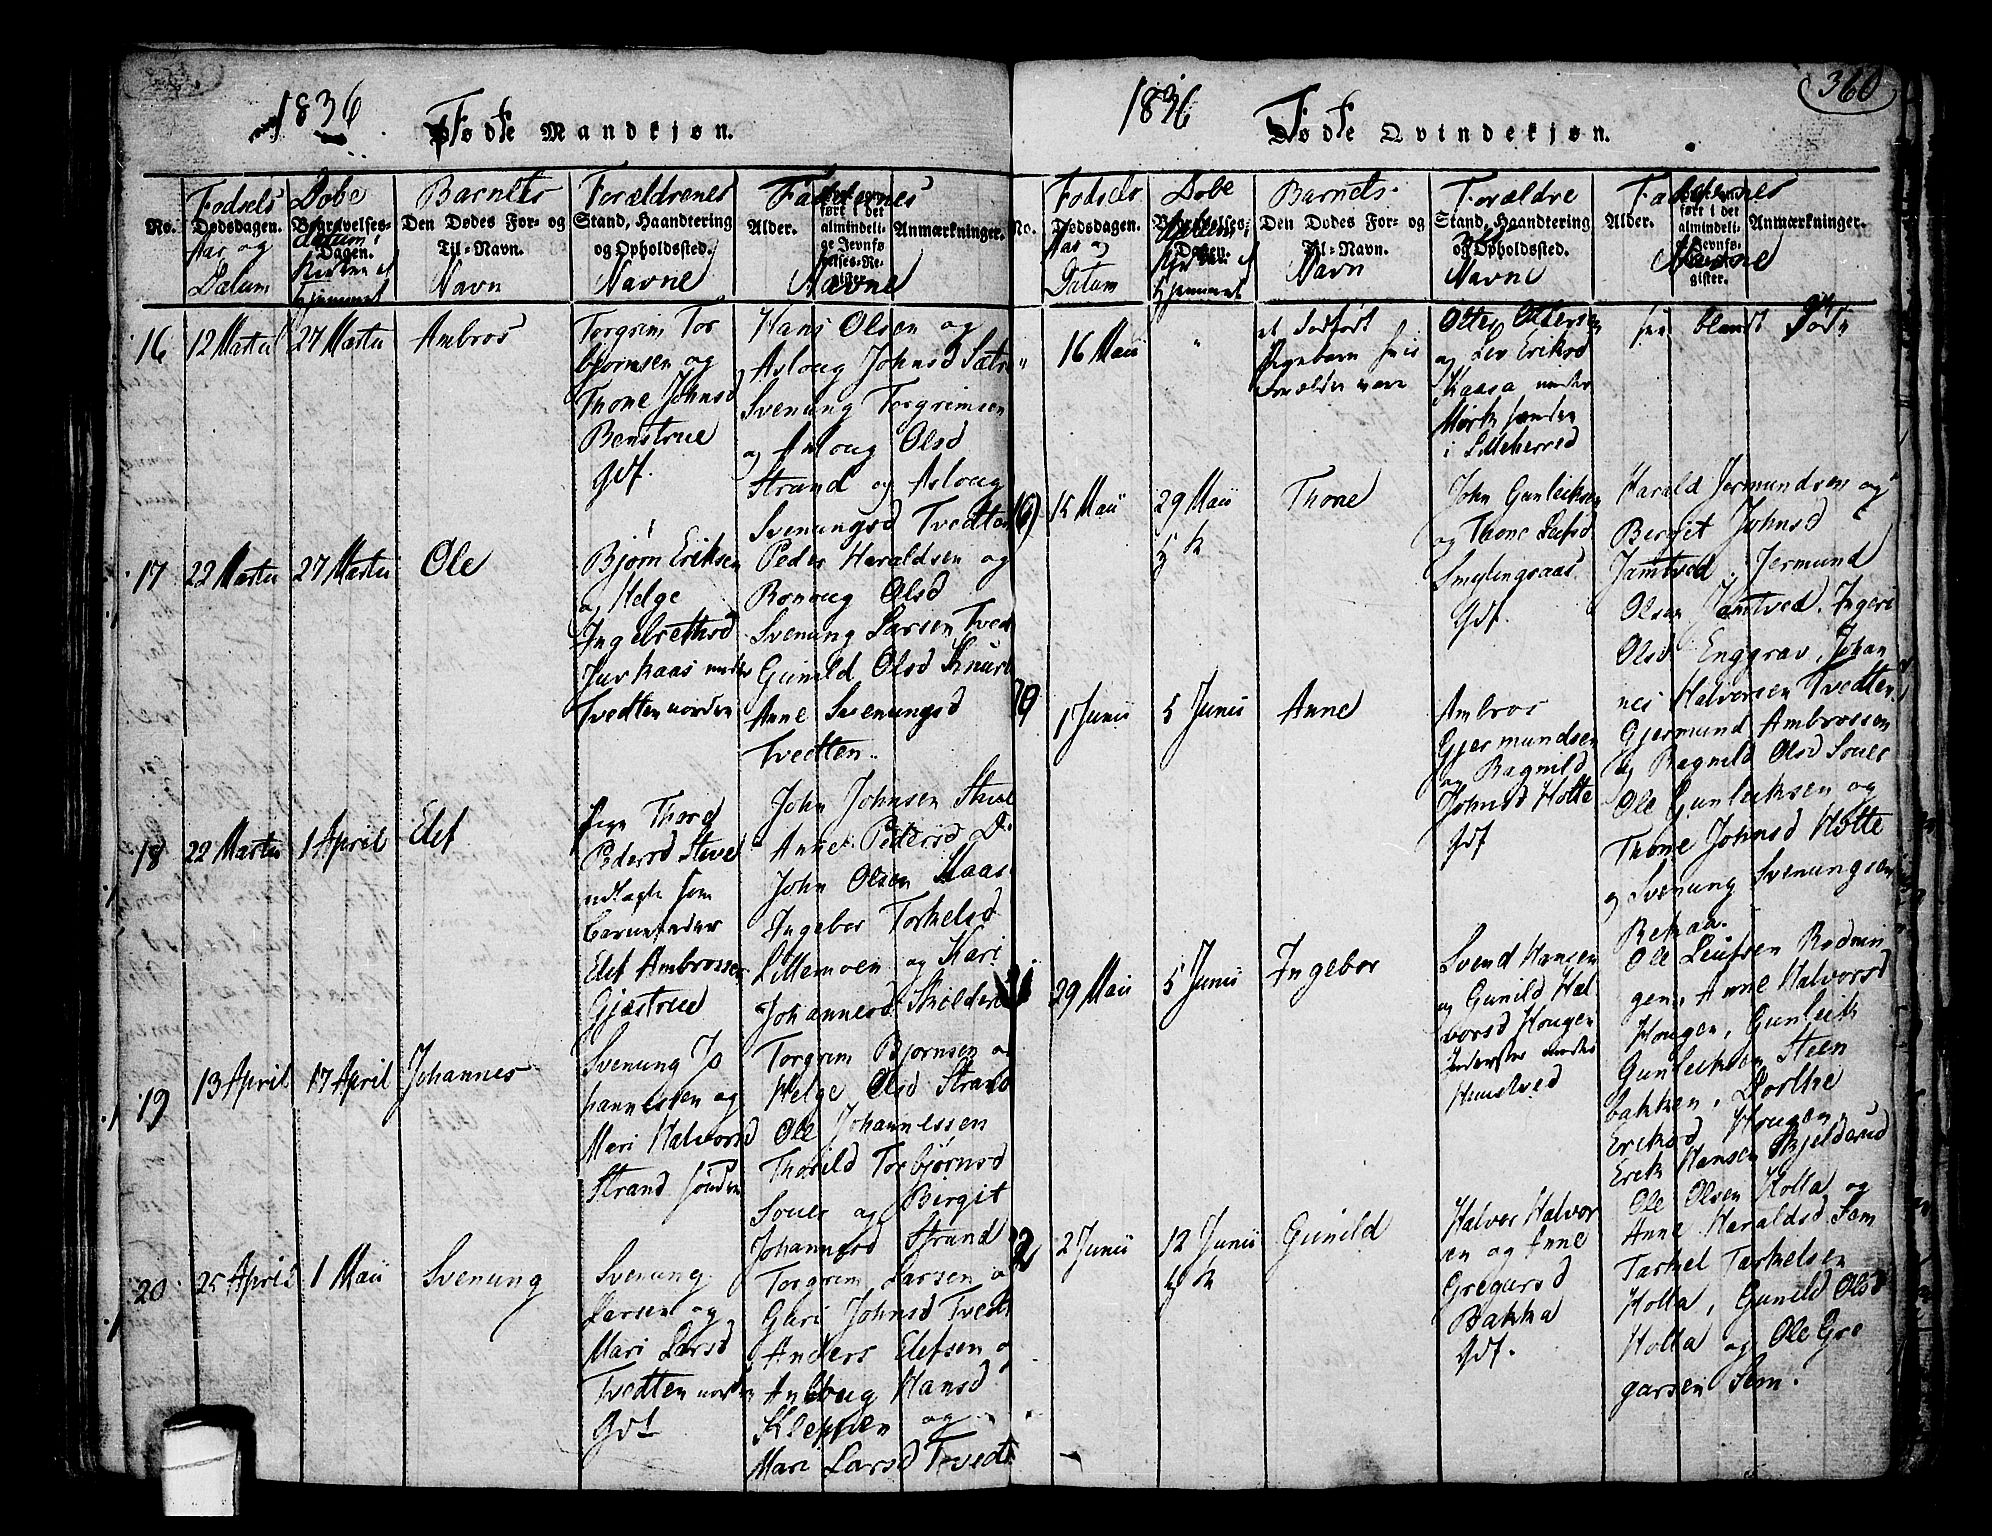 1836
Fødte Mandkjøn.
No.
Fødsels
Dødsdagen.
Aar og
Datum
Døbe
Begravelses-
datum i
Dagen.
Kirken el
hjemmet
Barnets
Den Dødes For- og
Til-Navn.
Navn
Forældrenes
Stand, Haandtering
og Opholdssted.
Navne
Faddernes
Alder.
ført i det
almindeli-
ge Jevnfø-
relses-Re-
gister.
Anmærkninger.
Navne
16
12 Martii
27 Martii
Ambros
Torgrim Tor
bjørnsen og
Thone Johnsd
Benstrue
Gdf.
Hans Olsen og
Asloug Johnsd
Svenung Torgrimsen
og Anloug Olsd
Strand og Asloug
Svenungsd Tvedten
17
22 Martii
27 Martii
Ole
Bjørn Eriksen
og Helge
Ingebrethsd
Juvkaas under
Tvedten norden
Peder Haraldsen og
Ronoug Olsd
Svenung Larsen Tved
Gunild Olsd
Anne Svenungsd
Tvedten.
18
22 Martii
1 April
Elef
Pige Thore
Pedersd
udlagte som
barnefader
Elef Ambrossen
Gjæstrue
John Johnsen
Anne Pedersd
John Olsen Kaas
Ingebor Torkelsd
Lillemoen og Kari
Johannesd
19
13 April
17 April
Johannes
Svenung Jo
hannessen og
Mari Halvorsd
Strand sønden
Torgrim Bjørnsen og
Helge Olsd Strand
Ole Johannessen
Thorild Torbjørnsd
Soues og Birgit
Johannesd Strand
20
25 April
1 Maii
Svenung
Svenung
Larsen og
Mari Larsd
Tvedten norden
Gdf
Torgrim Larsen og
Guri Johnsd Tvedt
Anders Elefsen og
Anloug Hansd
Kleppen og
Mari Larsd Tvedt
1836
360
Fødte Qvindekjøn.
No.
Fødsels
Dødsdagen.
Aar og
Datum
Døbe
Dagen.
Kirken el
hjemmet
Barnets
Den Dødes For- og
Til-Navn.
Navn
Forældre
Stand, Haandtering
og Opholdssted.
Navne
Faddernes
Alder.
ført i det
almindeli-
ge Jevnfø-
gister.
Anmærkninger.
Navne
16 Maii
"
et dødfødt
Pigebarn hvis
Forældre vare
Olter Oltersen
og Liv Eriksd
Kaasa under
Mørk sønden
i Lilleherred
see blandt Døde
15 Maii
29 Maii
Thone
John Gunleiksen
og Thone
Smylingsaas.
Gdf.
Harald Jermundsen og
Bergit Johnsd
Jamtved. Jermund
Olsen Jamtved. Ingeri
Olsd Enggrav, Johan
nes Halvorsen Tvedten
1 Junii
5 Junii
Anne
Ambros
Gjermundsen
og Ragnild
Johnsd Holte
Gdf
Gjermund Ambrossen
og Ragnild Olsd Soues
Ole Gunleiksen og
Thone Johnsd Holte
og Svenung Svenungsen
Rekaa.
29 Maii
5 Junii
Ingebor
Svend Hansen
og Gunild Hal
vorsd Hougen
Inderster under
Hemstved
Ole Leifsen Rodnin
gen, Anne Halvorsd
Hougen, Gunleik
Gunleiksen Steen
bakken, Dorthe
Eriksd Hougen
Erik Hansen Skjelderud
2
2 Junii
12 Junii
Gunild
Halvor Halvor
sen og Anne
Gregarsd
Bakka
Gdf.
Ole Olsen Holla og
Anne Haraldsd Sem
Tarkel Tarkelsen
Holla, Gunild Olsd
Holla og Ole Gre
garsen Sem.